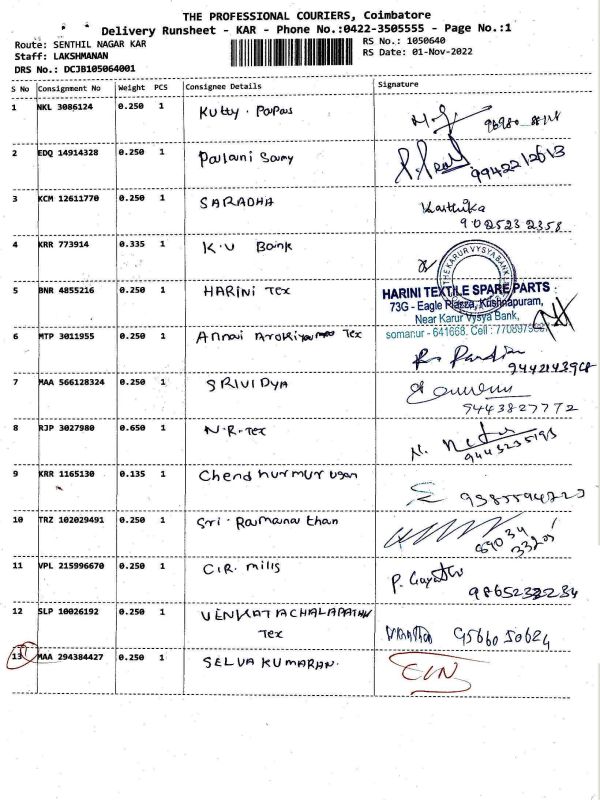 THE PROFESSIONAL COURIERS, Coimbatore
Delivery Runsheet - KAR - Phone No.:0422-3505555 - Page No.:1
Route: SENTHIL NAGAR KAR RS No.: 1050640
Staff: LAKSHMANAN RS Date: 01-Nov-2022
DRS No.: DCJB105064001
S No Consignment No Weight PCS Consignee Details Signature
1 NKL 3086124 0.250 1 Kutty. Papas
2 EDQ 14914328 0.250 1 Palani Samy 9942212613
3 KCM 12611770 0.250 1 SARADHA Karthika
9025232358
4 KRR 773914 0.335 1 K.V Bank
THE KARUR VYSYA BANK
5 BNR 4855216 0.250 1 HARINI Tex HARINI TEXTILE SPARE PARTS
73G - Eagle Plazza, Krishnapuram,
Near Karur Vysya Bank,
somanur - 641668. Cell :
6 MTP 3011955 0.250 1 Annai Tex
7 MAA 566128324 0.250 1 SRIVIDYA
9443827772
8 RJP 3027980 0.650 1 N.R.Tex N.
9 KRR 1165130 0.135 1 Chendhurmurugan
10 TRZ 102029491 0.250 1 Sri. Ramanathan
89034
33205
11 VPL 215996670 0.250 1 C.R. mills P.
9865232234
12 SLP 10026192 0.250 1 VENKATACHALAPATHI
Tex 9566050624
13 MAA 294384427 0.250 1 SELVA KUMARAN.